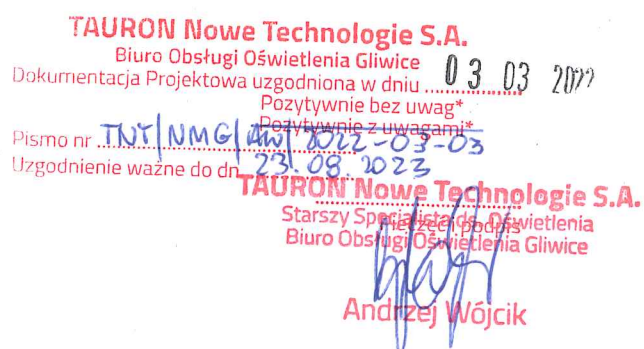 TAURON Nowe Technologie S.A.
Biuro Obsługi Oświetlenia Gliwice
Dokumentacja Projektowa uzgodniona w dniu 03 03 2022
Pozytywnie bez uwag*
Pozytywnie z uwagami*
Pismo nr TNT/NMG/AW/2022-03-03
Uzgodnienie ważne do dn 23.08.2023
TAURON Nowe Technologie S.A.
Starszy Specjalista ds. Oświetlenia
Pieczęć i podpis
Biuro Obsługi Oświetlenia Gliwice
Andrzej Wójcik